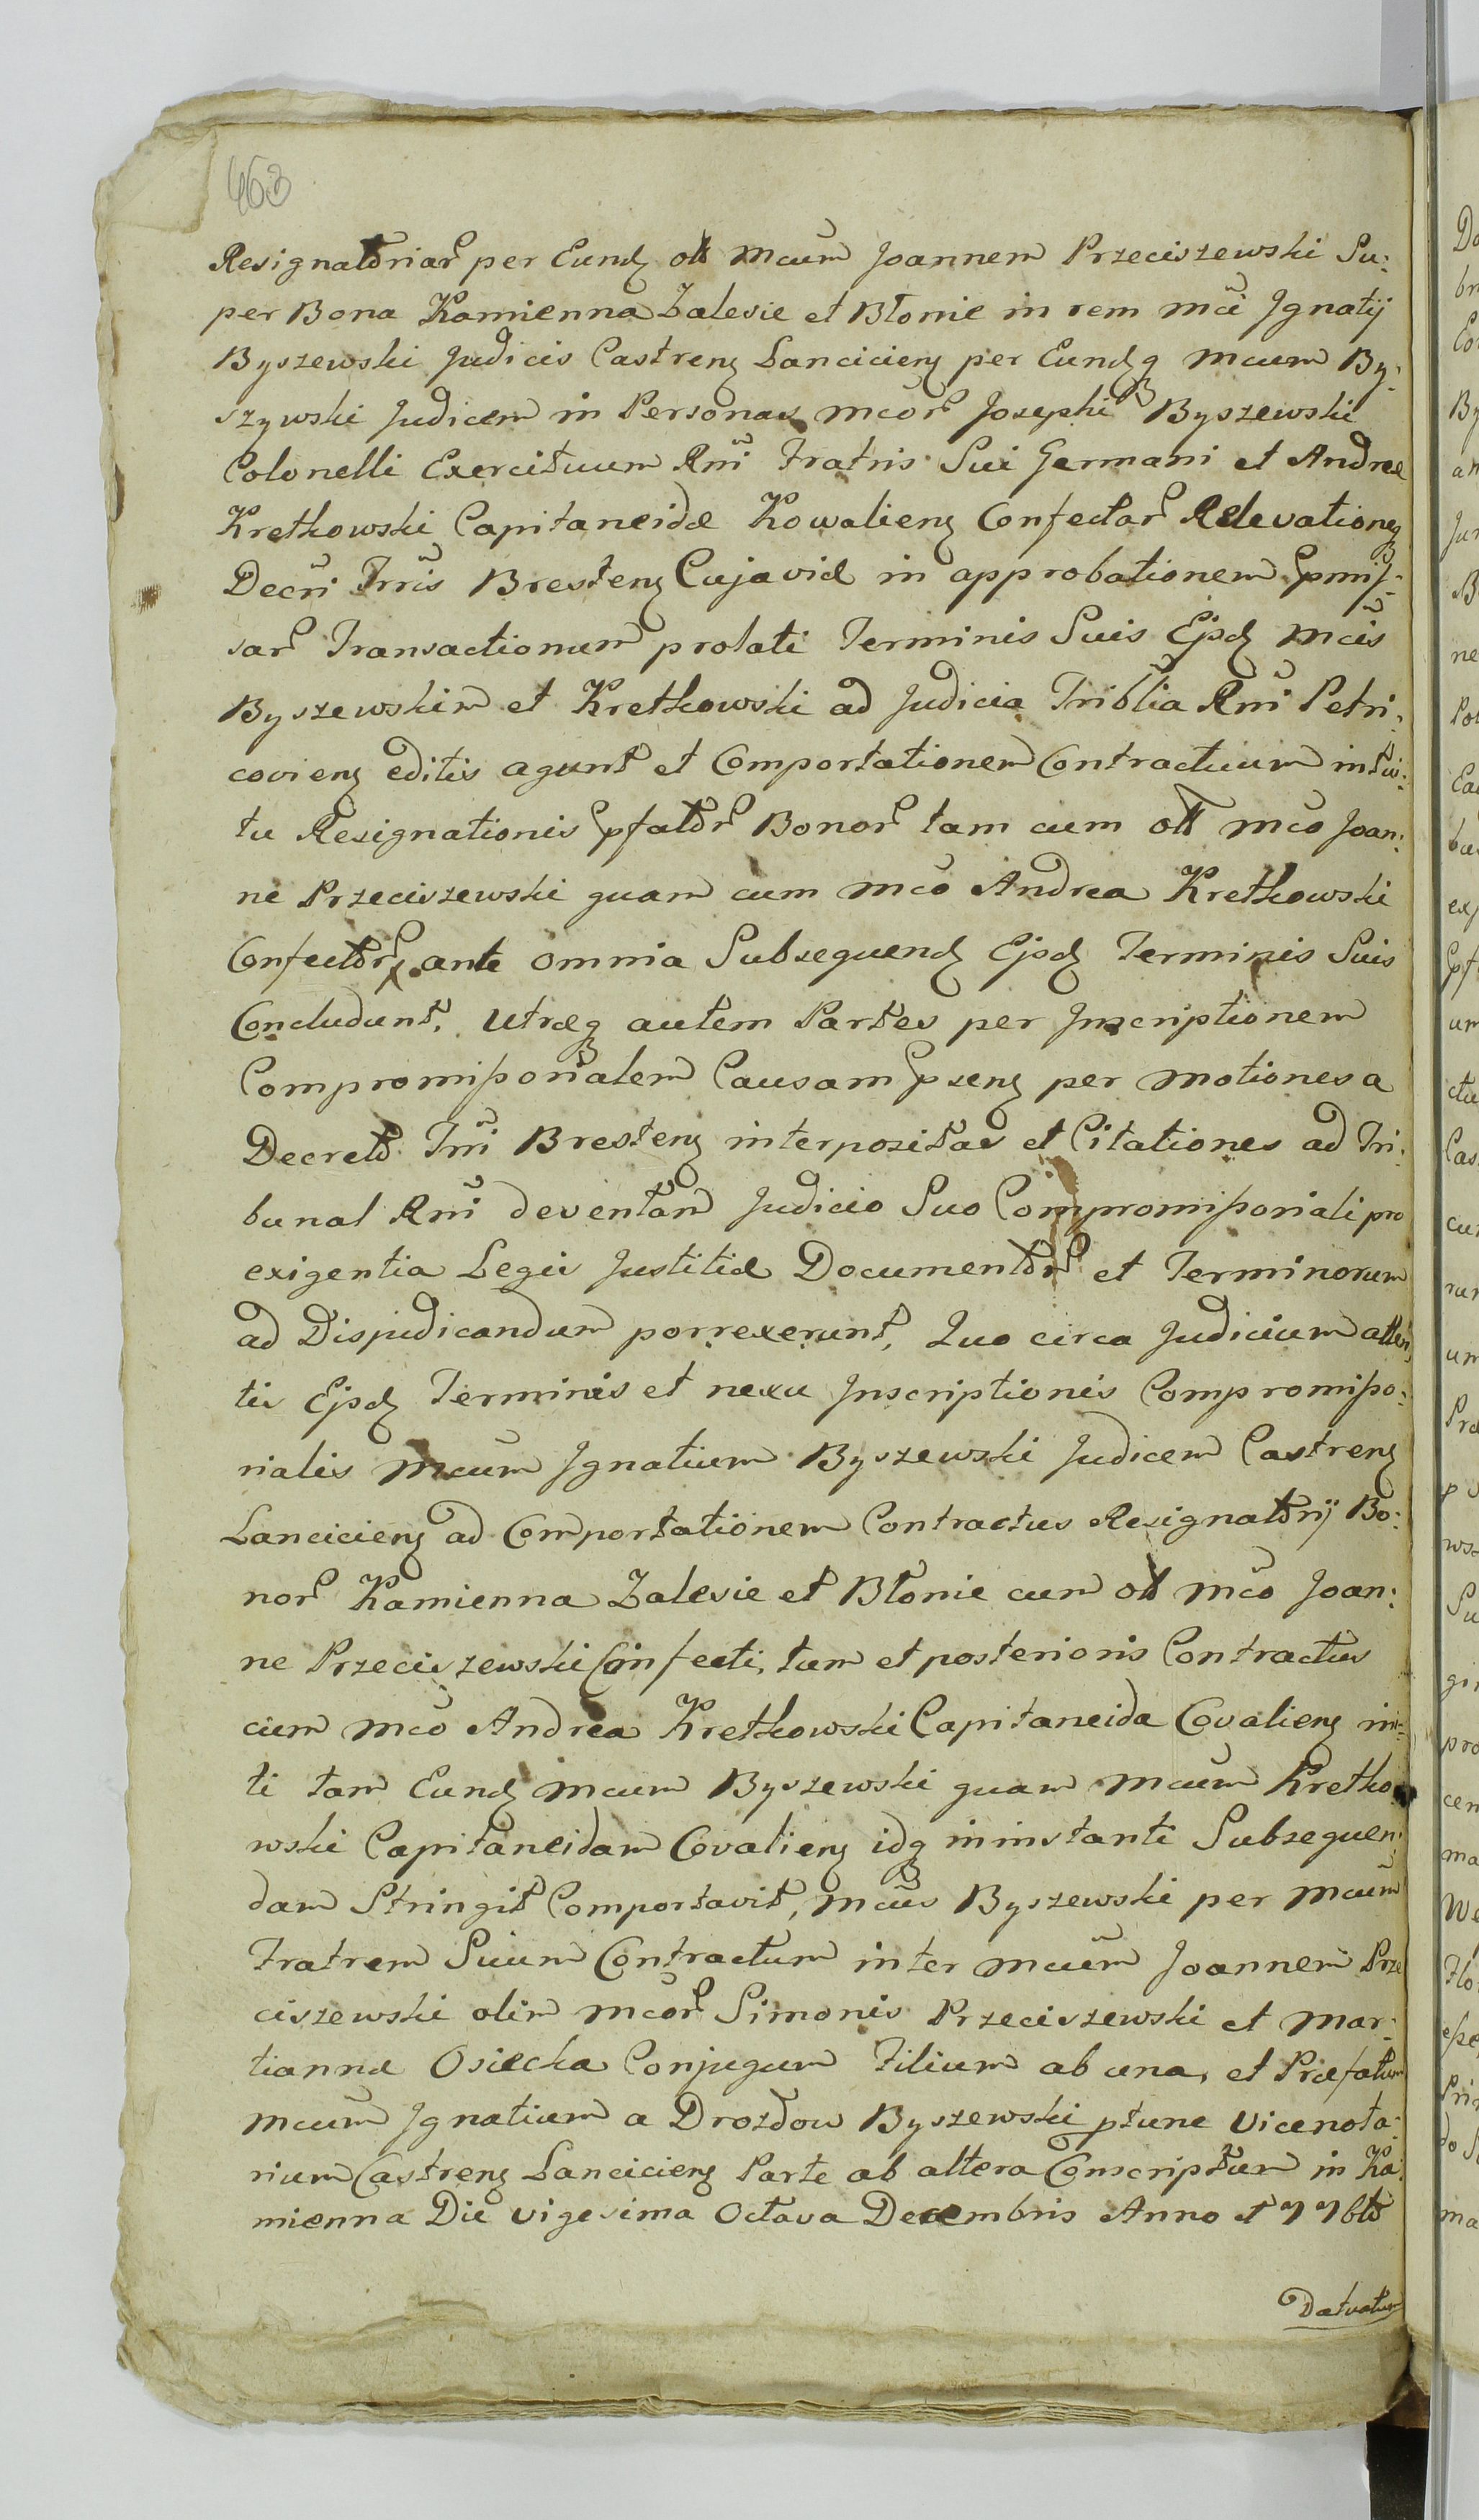 463
Resignatoriar per Eund olt Mcum Joannem Przeciszewski Su:
per Bona Kamienna Zalesie et Błonie in rem Mci Jgnatij
Byszewski Judicis Castren Lancicien per Eundq Mcum By:
szywski Judicem in Personas Mcor Josephi Byszewski
Colonelli Exercituum Rni Fratris Sui Germani et Andreæ
Kretkowski Capitaneidæ Kowalien Confectar Relevationeq
Decri Trris Bresten Cujaviæ in approbationem pmis:
sar Transactionum prolati Terminis Suis Ejsd Mcis
Byszewskim et Kretkowski ad Judicia Triblia Rni Petri:
covien editis agunt et Comportationem Contractuum intui:
tu Resignationis pfator Bonor tam cum olt Mco Joan:
ne Przeciszewski quam cum Mco Andrea Kretkowski
Confector, ante omnia Subsequend Ejsd Terminis Suis
Concludunt, Utræq autem Partes per Jnscriptionem
Compromissorialem Causam psen per motiones a
Decreto Trri Bresten interpositas et Citationes ad Tri:
bunal Rni deventam Judicio Suo Compromissoriali pro
exigentia Legis Justitiæ Documentor et Terminorum
ad Disjudicandum porrexerunt, Quo circa Judicium atten
tis Ejsd Terminis et nexu Jnscriptionis Compromisso:
rialis Mcum Jgnatium Byszewski Judicem Castren
Lancicien ad Comportationem Contractus Resignatorij Bo:
nor Kamienna Zalesie et Błonie cum olt Mco Joan:
ne Przeciszewski Confecti, tum et posterioris Contractus
cum Mco Andrea Kretkowski Capitaneida Covalien ini:
ti tam Eund Mcum Byszewski quam Mcum Kretko
wski Capitaneidam Covalien idq in instanti Subsequen:
dam Stringit Comportavit, Mcus Byszewski per Mcum
Fratrem Suum Contractum inter Mcum Joannem Prze
ciszewski olim Mcor Simonis Przeciszewski et Mar:
tiannæ Osiecka Conjugum Filium ab una, et Præfatum
Mcum Jgnatium a Drozdow Byszewski ptunc Vicenota:
rium Castren Lancicien Parte ab altera Conscriptum in Ka
mienna Die vigesima Octava Decembris Anno 1776to